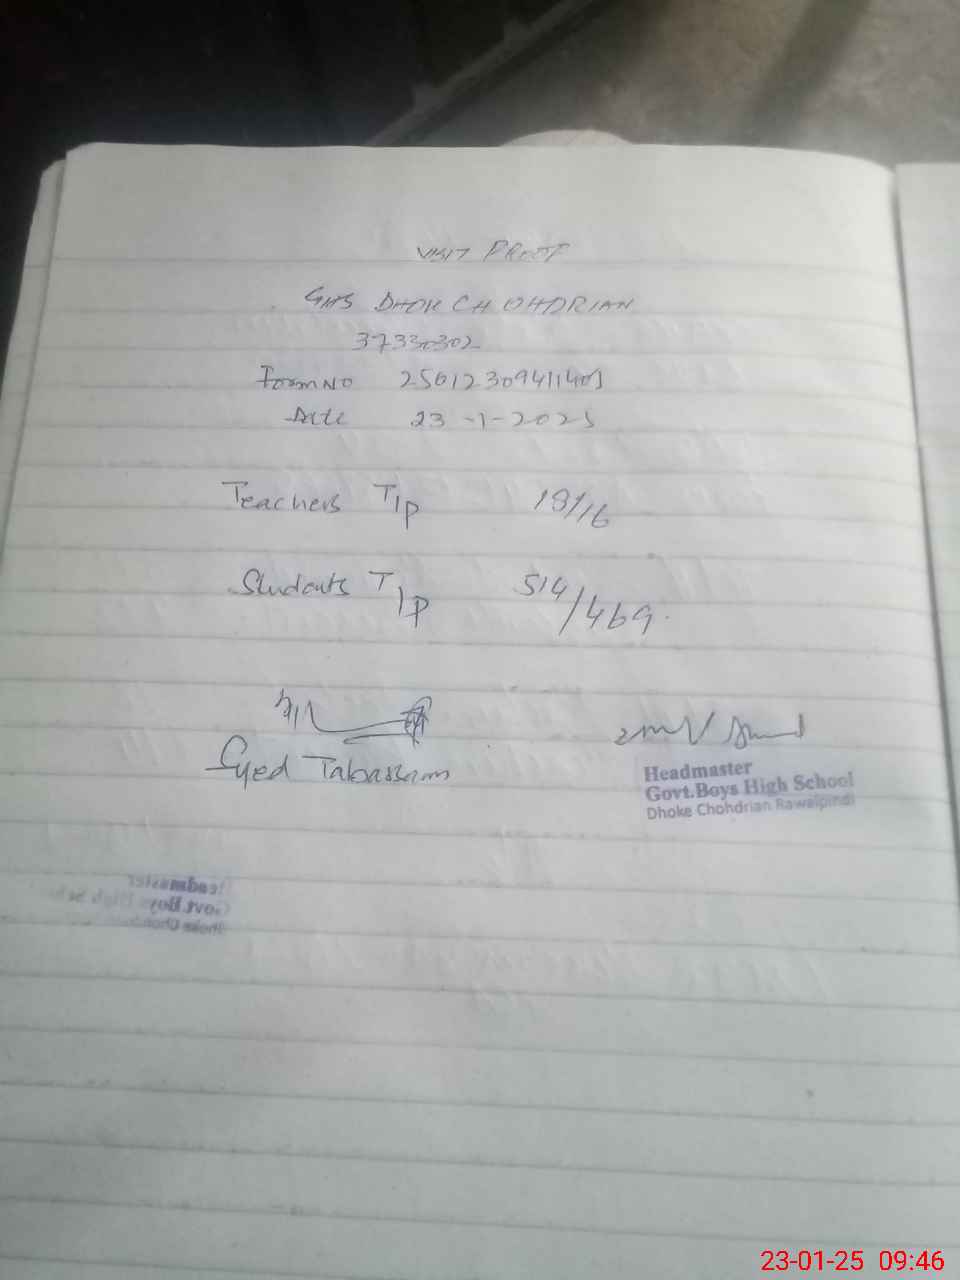 VISIT PROOF
GHS DHOK CHOHDRIAN
37330302
Form No 250123094111401
Date 23-1-2025
Teachers T/P 18/16
Students T/P 514/469.
Syed Tabassam
Headmaster
Govt.Boys High School
Dhoke Chohdrian Rawalpindi
23-01-25 09:46